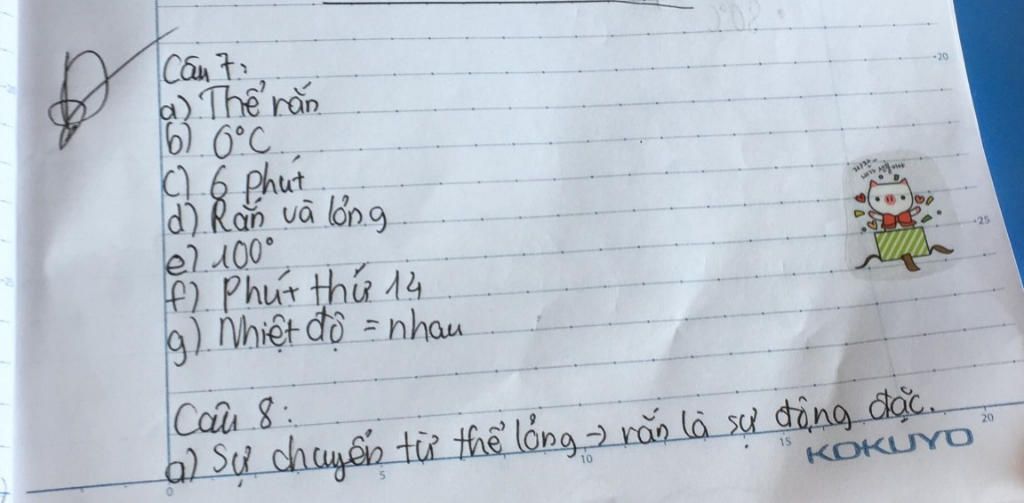 Câu 7:
a) Thể rắn
b) 0°C
c) 6 phút
d) Rắn và lỏng
e) 100°
f) Phút thứ 14
g) Nhiệt độ = nhau
Câu 8:
a) Sự chuyển từ thể lỏng → rắn là sự động đặc.
KOKUYO
20
25
0
5
10
15
20